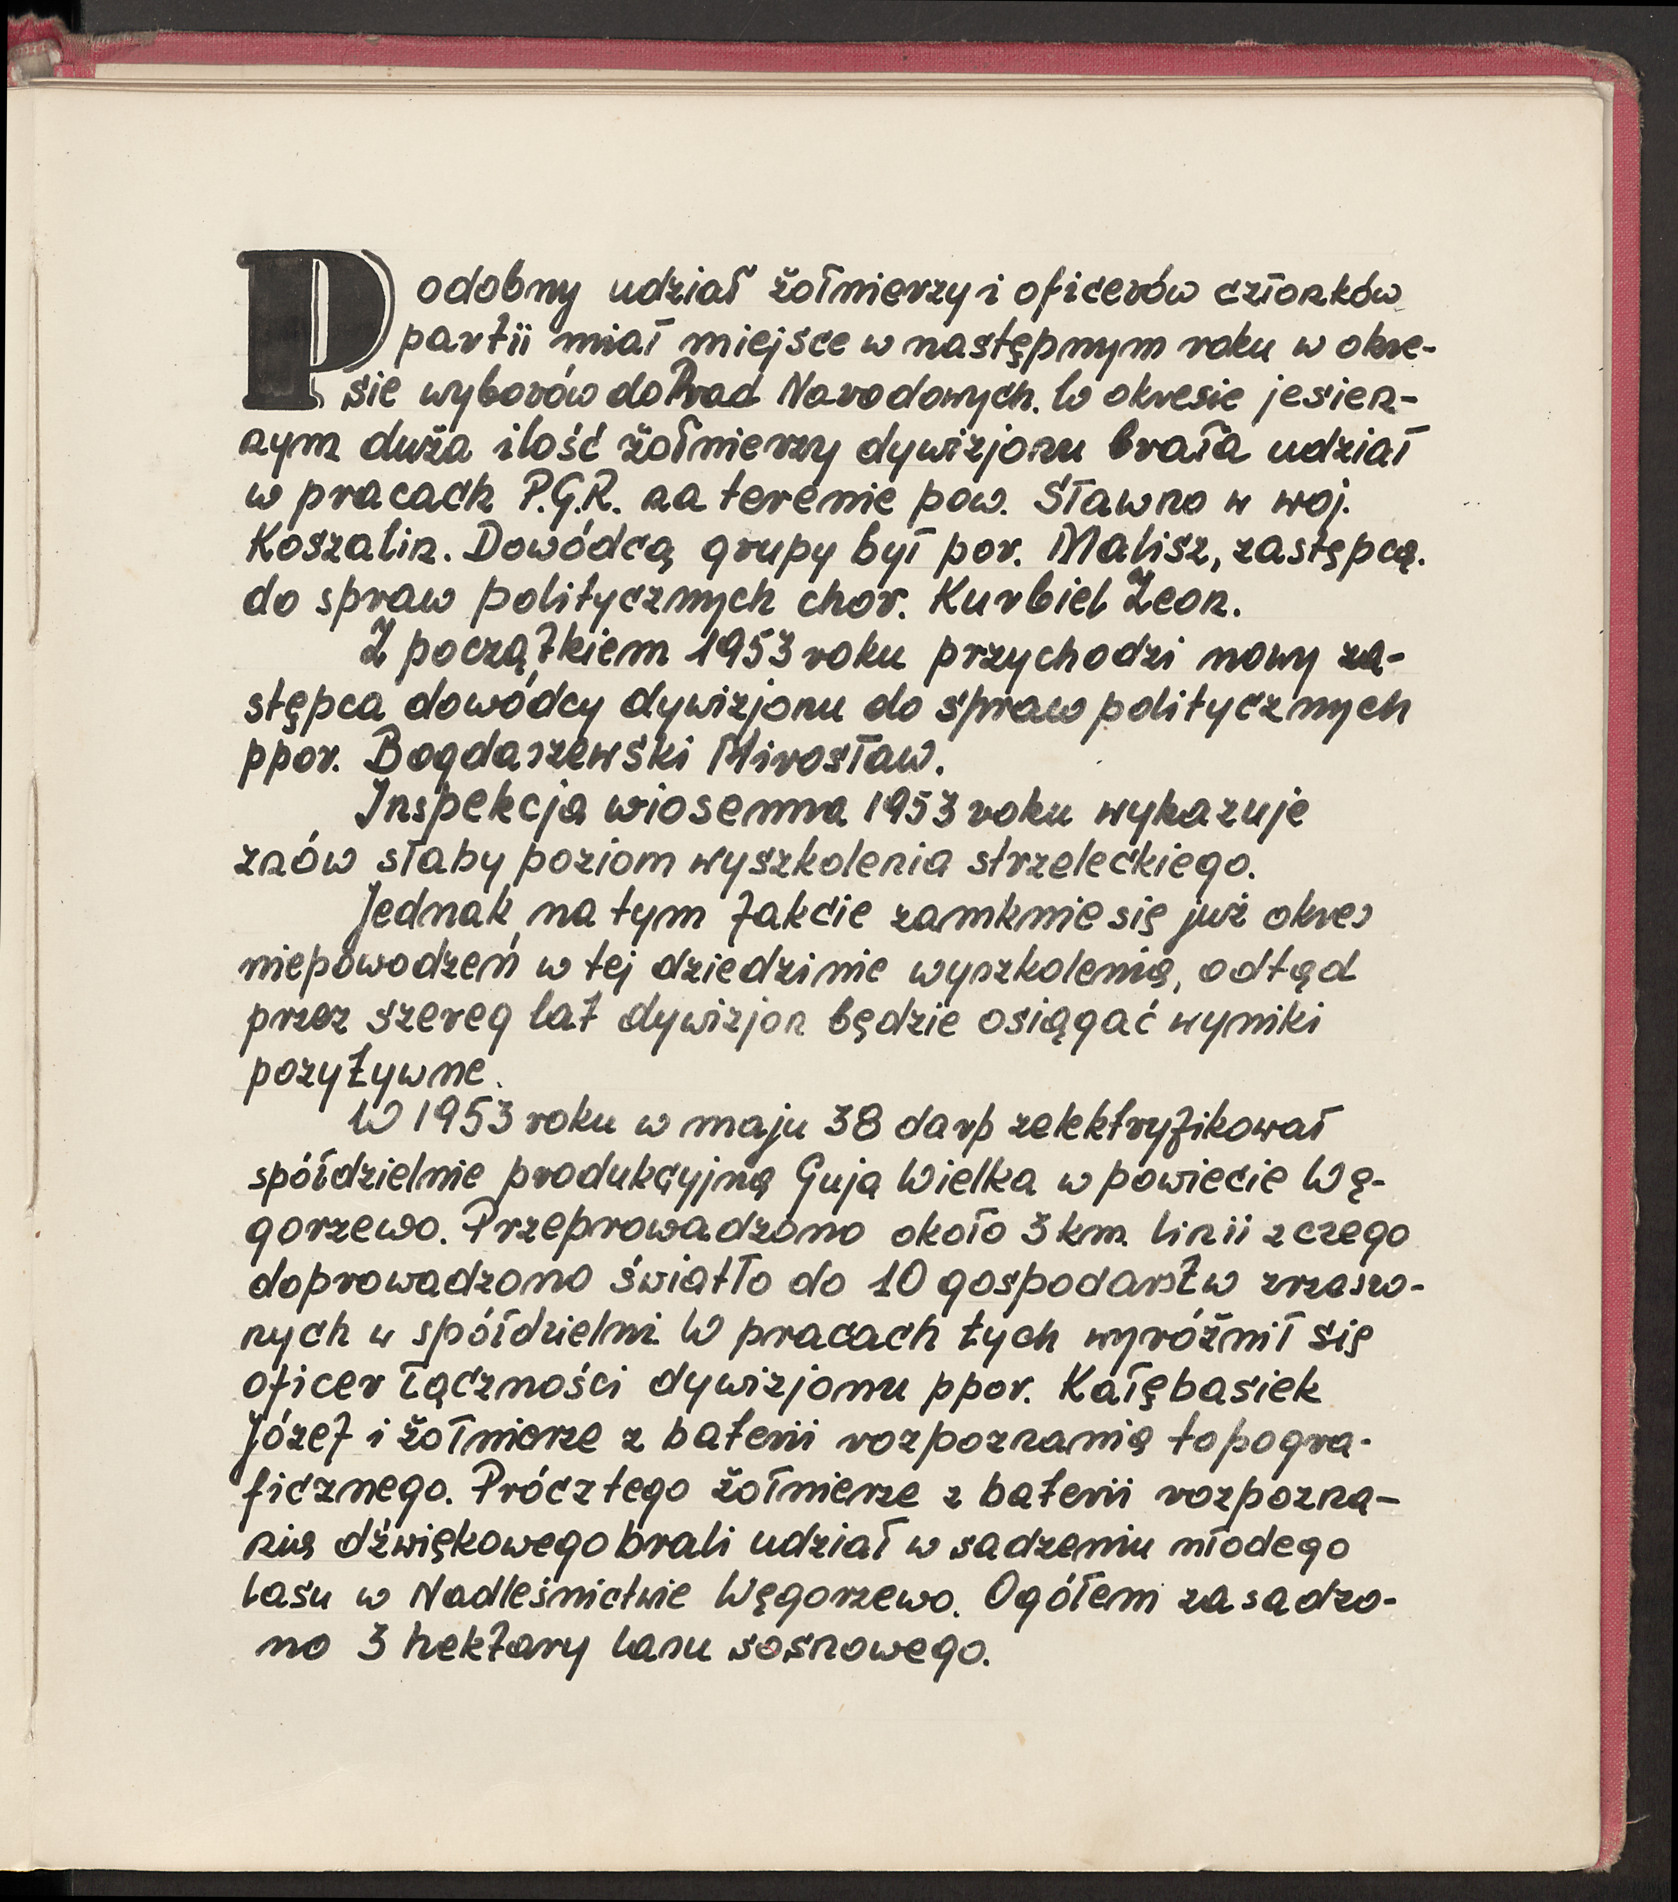 Podobny udział żołnierzy i oficerów członków
partii miał miejsce w następnym roku w okre-
sie wyborów do Rad Narodowych. W okresie jesien-
nym duża ilość żołnierzy dywizjonu brała udział
w pracach P.G.R. na terenie pow. Sławno w woj.
Koszalin. Dowódcą grupy był por. Malisz, zastępcą.
do spraw politycznych chor. Kurbiel Zeon.
Z początkiem 1953 roku przychodzi nowy za-
stępca dowódcy dywizjonu do spraw politycznych
ppor. Bogdaszewski Mirosław.
Inspekcja wiosenna 1953 roku wykazuje
znów słaby poziom wyszkolenia strzeleckiego.
Jednak na tym fakcie zamknie się już okres
niepowodzeń w tej dziedzinie wyszkolenia, odtąd
przez szereg lat dywizjon będzie osiągać wyniki
pozytywne.
W 1953 roku w maju 38 darp zelektryfikował
spółdzielnie produkcyjną Guja Wielka w powiecie Wę-
gorzewo. Przeprowadzono około 3 km. linii z czego
doprowadzono światło do 10 gospodarstw zrzeszo-
nych w spółdzielni. W pracach tych wyróżnił się
oficer łączności dywizjonu ppor. Kałębasiek
Józef i żołnierze z baterii rozpoznania topogra-
ficznego. Prócz tego żołnierze z baterii rozpozna-
nia dźwiękowego brali udział w sadzeniu młodego
lasu w Nadleśnictwie Węgorzewo. Ogółem zasadzo-
no 3 hektary lasu sosnowego.